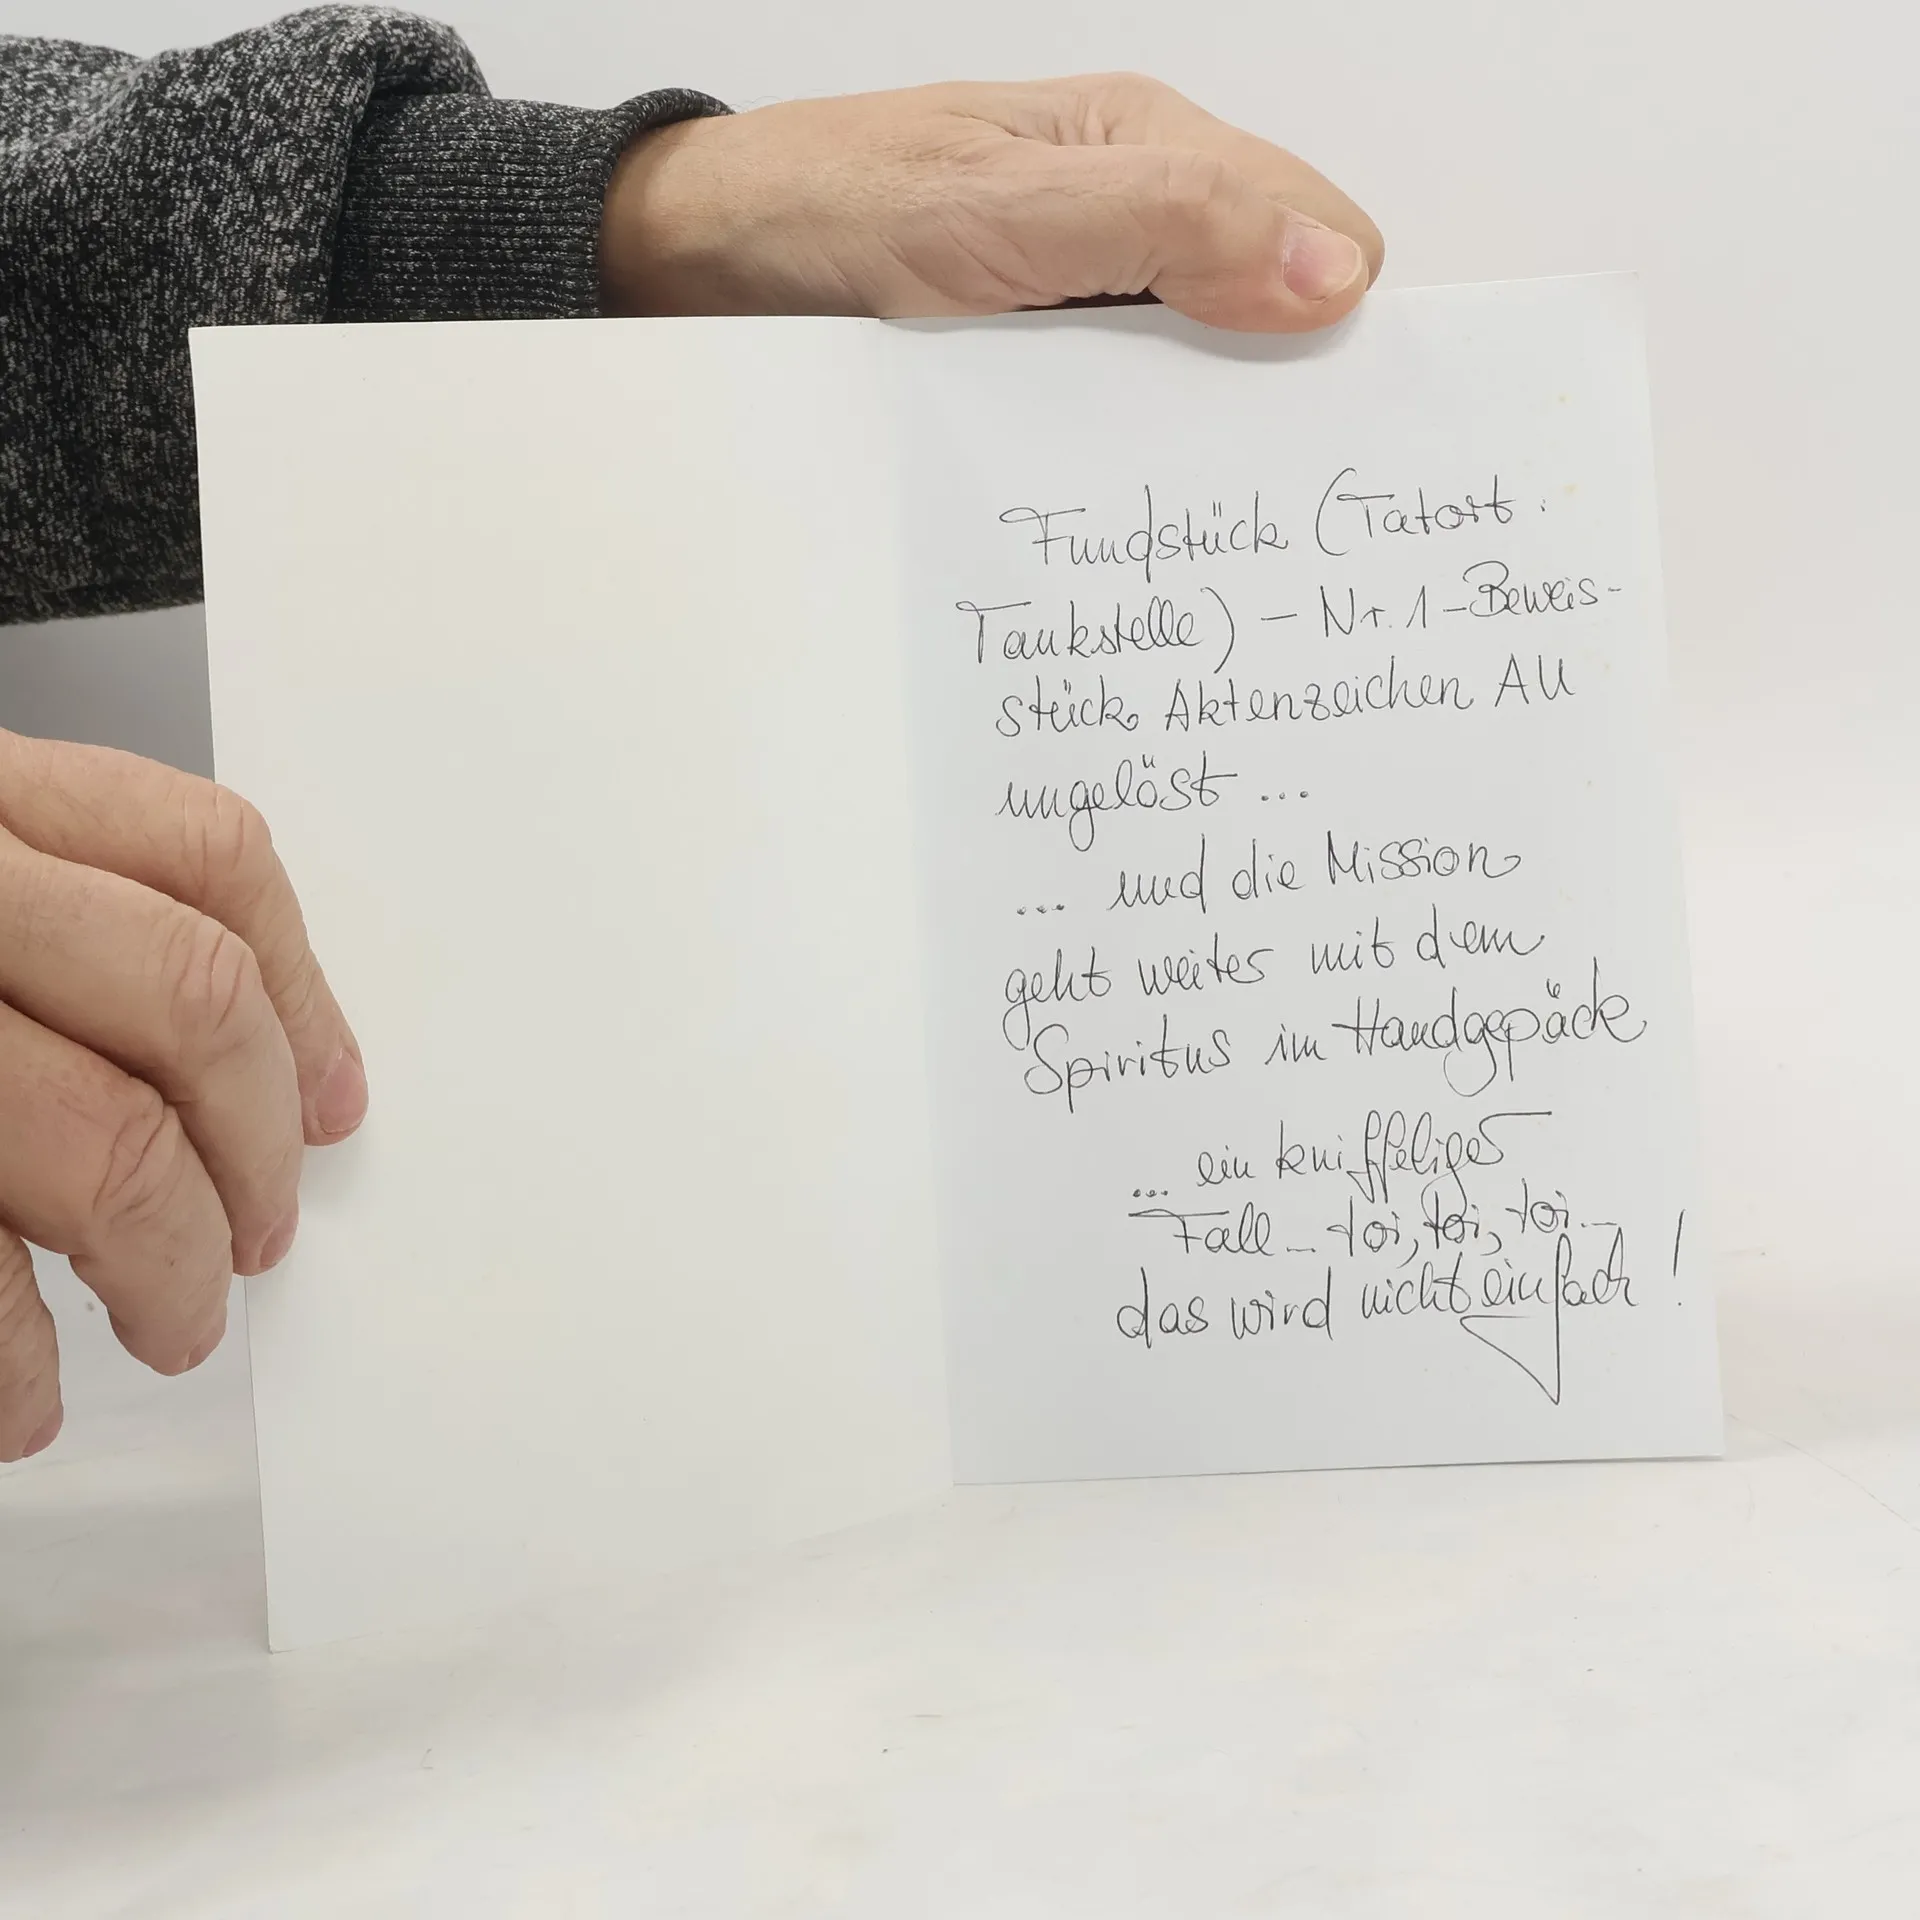 Fundstück (Tatort:
Tankstelle) – Nr. 1 – Beweis-
stück Aktenzeichen AU
ungelöst ...
... und die Mission
geht weiter mit dem
Spiritus im Handgepäck
... ein kniffeliger
Fall... toi, toi, toi...
das wird nicht einfach!